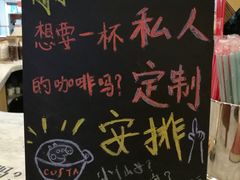 想要一杯私人
的咖啡吗?定制
安排
COSTA